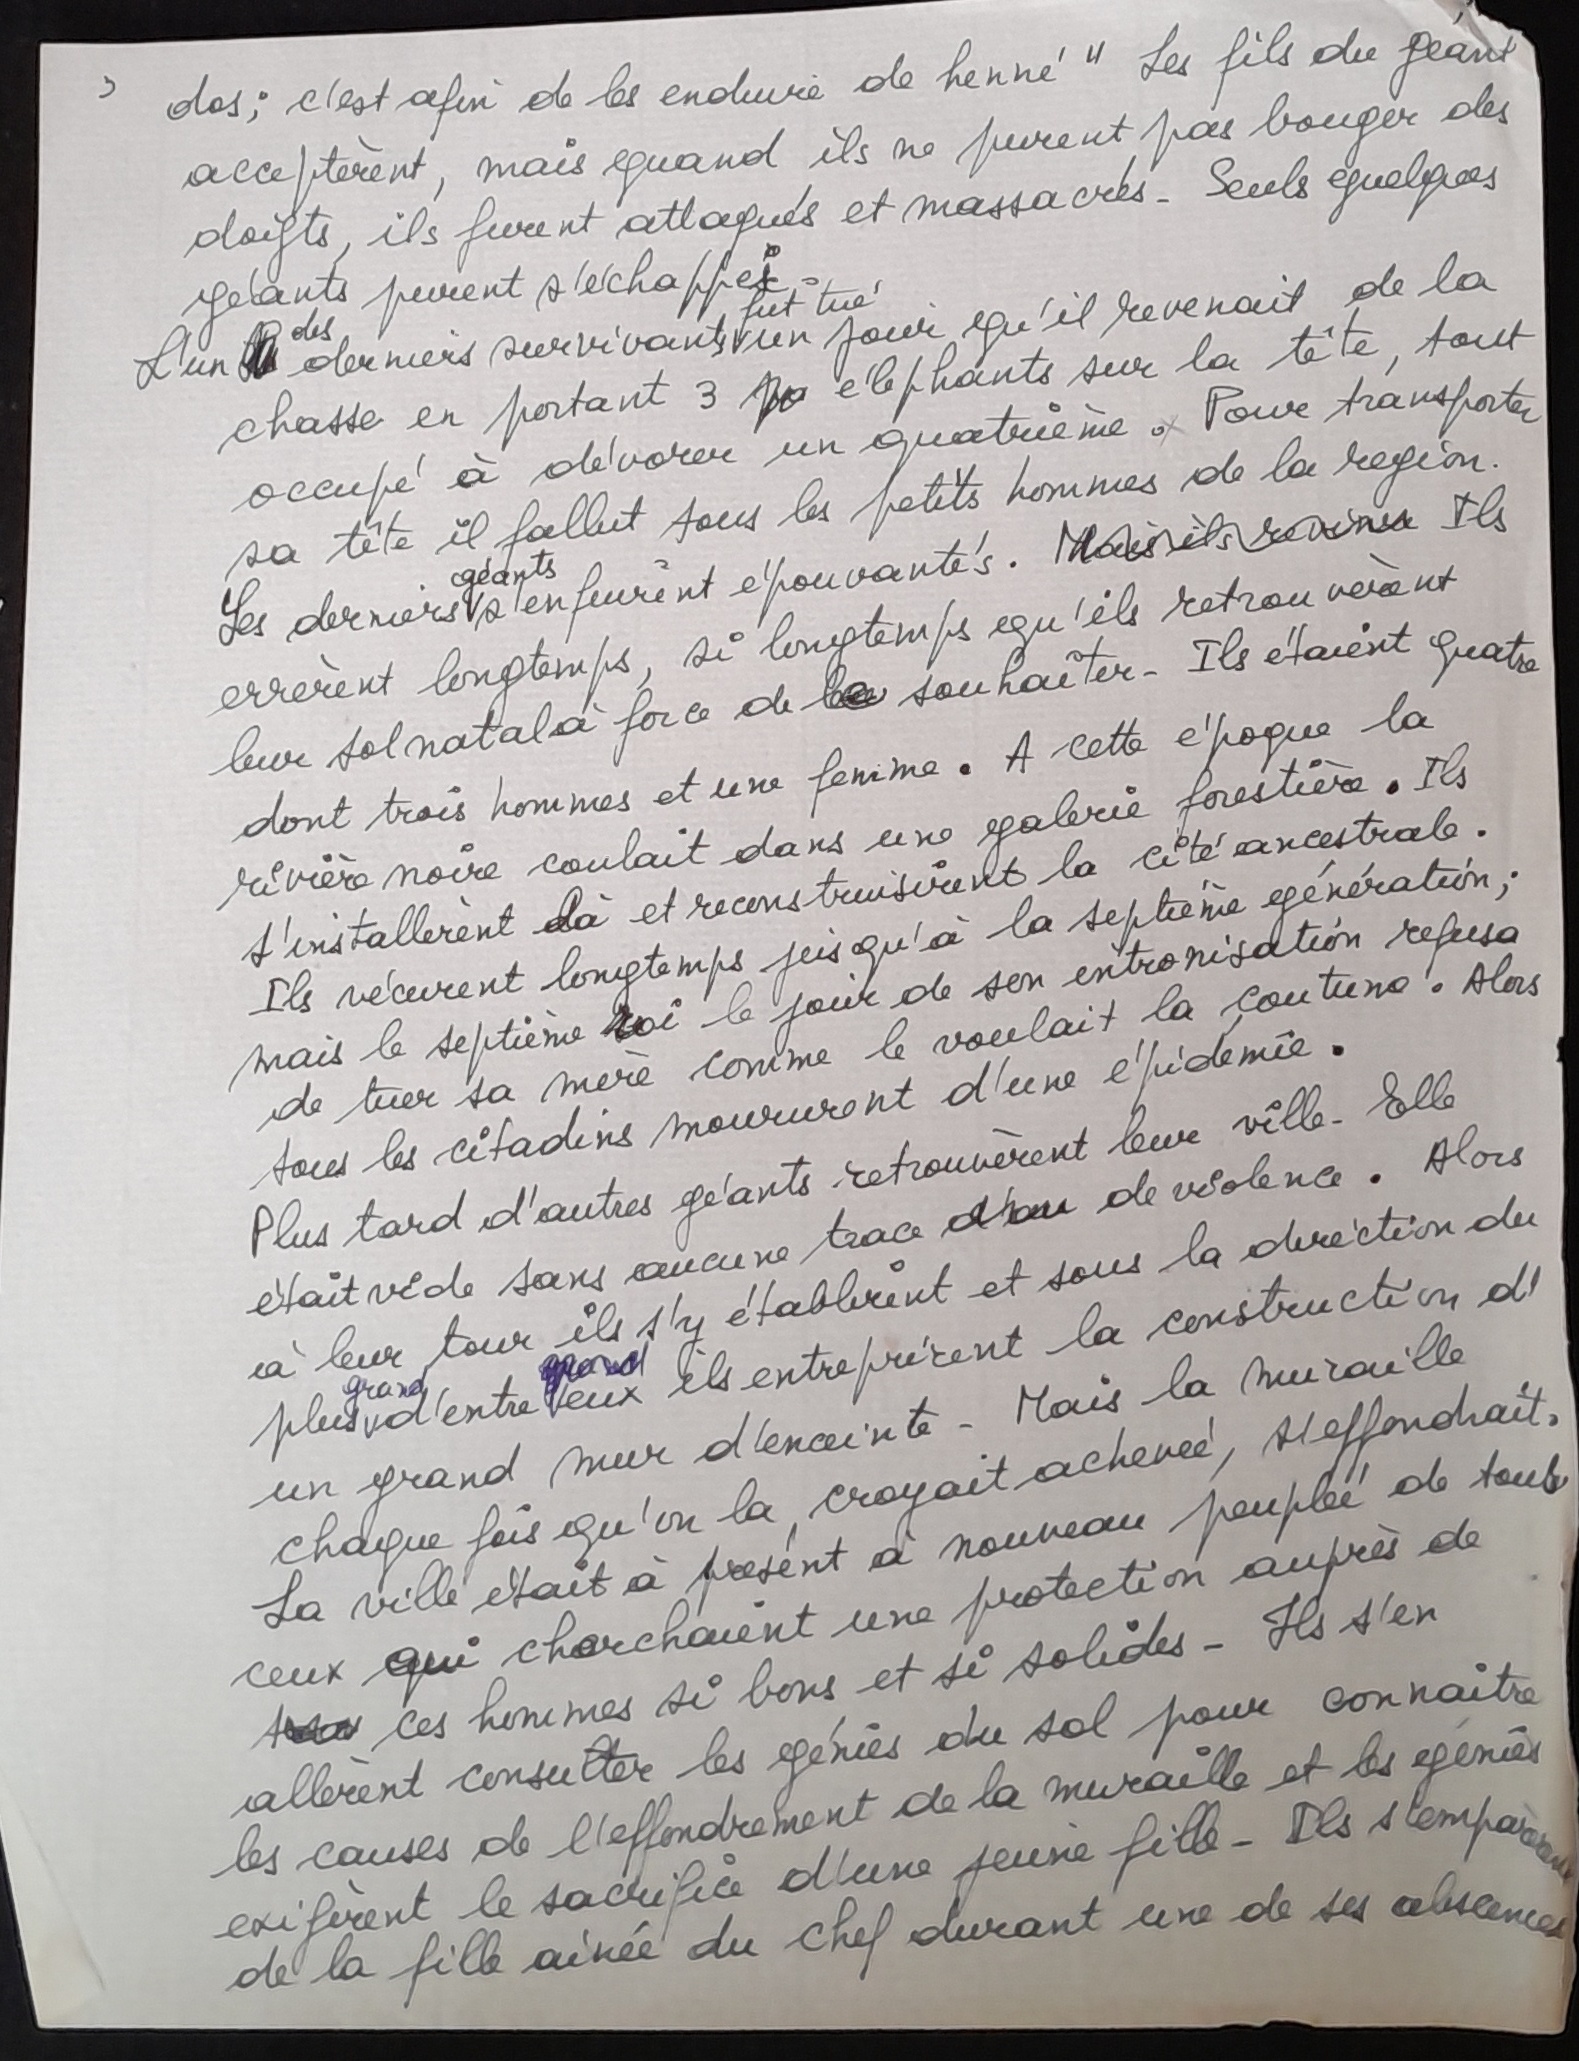 3
dos; c'est afin de les enduire de henné" Les fils du géant
acceptèrent, mais quand ils ne purent pas bouger des
doigts, ils furent attaqués et massacrés - Seuls quelques
géants purent s'échapper -
L'un des derniers survivants fut tué un jour qu'il revenait de la
chasse en portant 3 éléphants sur la tête, tout
occupé à dévorer un quatrième. Pour transporter
sa tête il fallut tous les petits hommes de la region.
Les derniers géants s'enfuirent épouvantés. Mais ils revinre Ils
errèrent longtemps, si longtemps qu'ils retrouvèrent
leur sol natal à force de le souhaiter - Ils étaient quatre
dont trois hommes et une femme. A cette époque la
rivière noire coulait dans une galerie forestière. Ils
s'installèrent là et reconstruisirent la cité ancestrale.
Ils vécurent longtemps jusqu'à la septième génération;
mais le septième roi le jour de son intronisation refusa
de tuer sa mère comme le voulait la coutume. Alors
tous les citadins moururent d'une épidemie.
Plus tard d'autres géants retrouvèrent leur ville - Elle
était vide sans aucune trace de violence. Alors
à leur tour ils s'y établirent et sous la direction du
plus grand d'entre eux ils entreprirent la construction d'
un grand mur d'enceinte - Mais la muraille
chaque fois qu'on la croyait achevée, s'effondrait.
La ville était à présent à nouveau peuplée de tous
ceux qui cherchaient une protection auprès de
ces hommes si bons et si solides - Ils s'en
allèrent consulter les génies du sol pour connaitre
les causes de l'effondrement de la muraille et les génies
exigèrent le sacrifice d'une jeune fille - Ils s'emparèrent
de la fille ainée du chef durant une de ses abscences